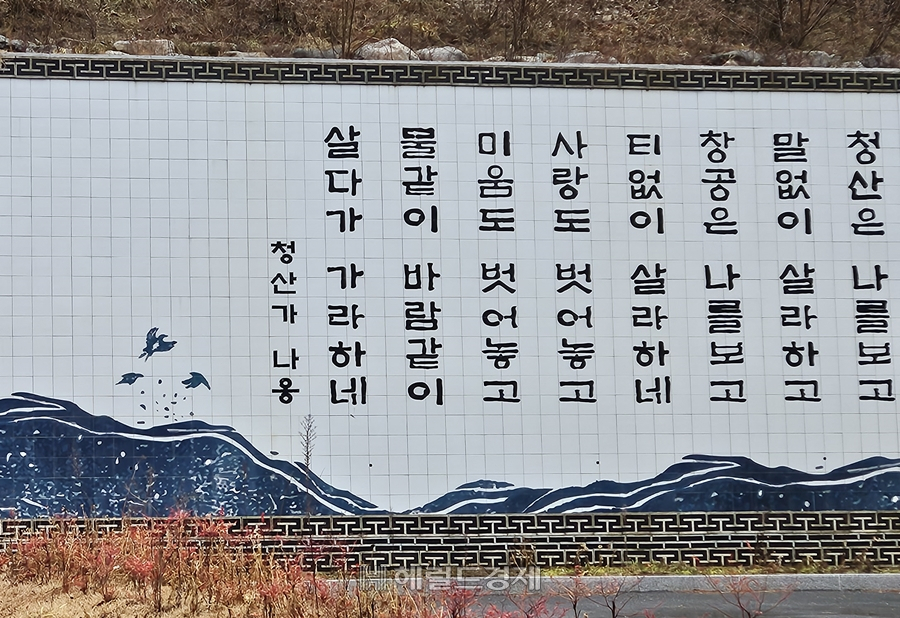 청산은 나를보고
말없이 살라하고
창공은 나를보고
티없이 살라하네
사랑도 벗어놓고
미움도 벗어놓고
물같이 바람같이
살다가 가라하네
청산가 나옹
헤럴드경제